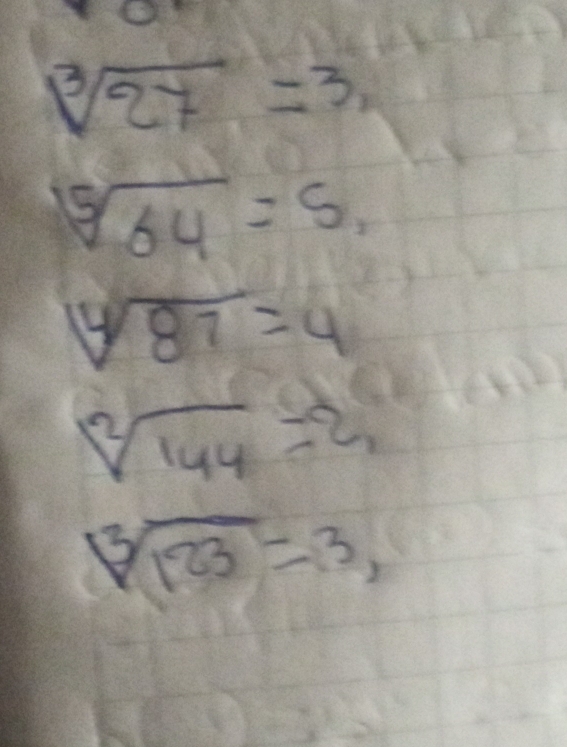 ∛27 = 3,
⁵√64 = 5,
∜87 = 4
²√144 = 2,
∛123 = 3,